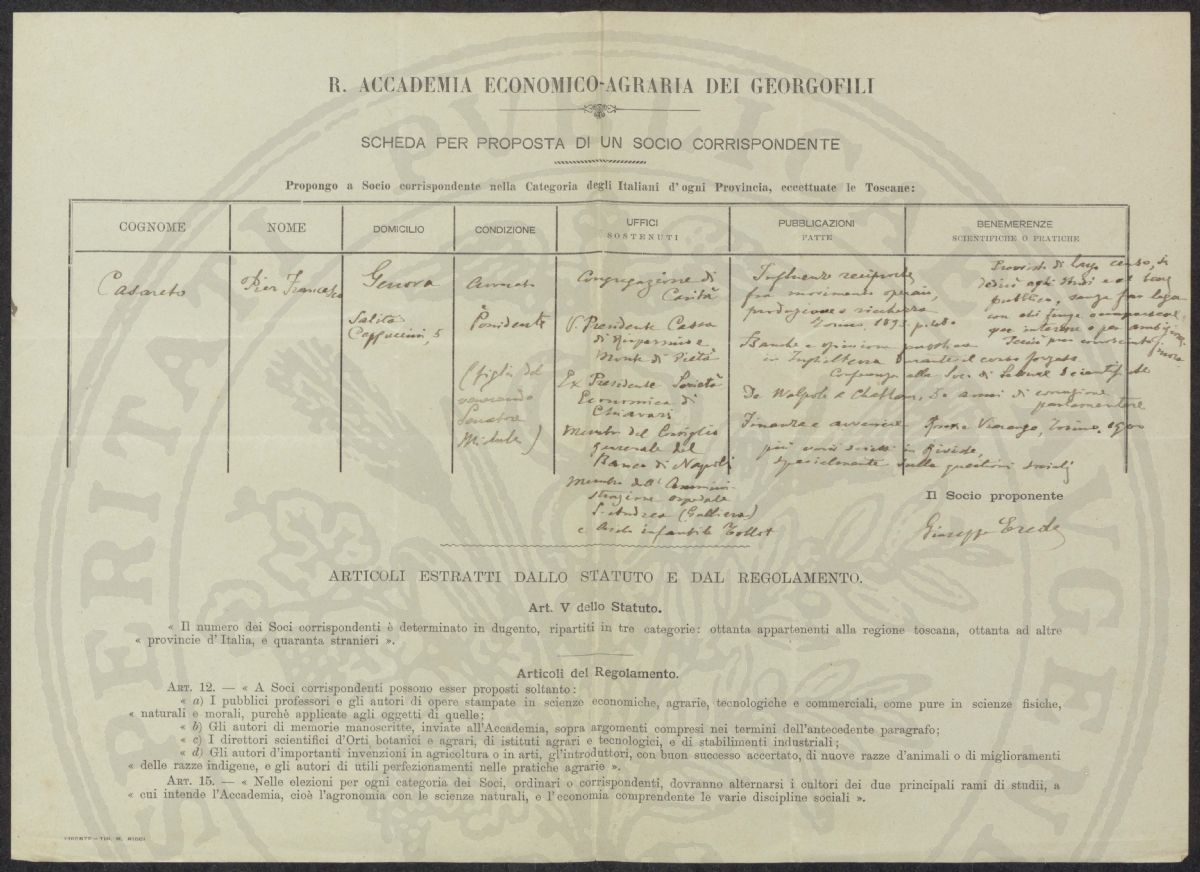 R. ACCADEMIA ECONOMICO-AGRARIA DEI GEORGOFILI
SCHEDA PER PROPOSTA DI UN SOCIO CORRISPONDENTE
Propongo a Socio corrispondente nella Categoria degli Italiani d'ogni Provincia, eccettuate le Toscane:
COGNOME
NOME
DOMICILIO
CONDIZIONE
UFFICI
SOSTENUTI
PUBBLICAZIONI
FATTE
BENEMERENZE
SCIENTIFICHE O PRATICHE
Casareto
Pier Francesco
Genova
Salita
Cappuccini, 5
Avvocato
Possidente
(figlio del
venerando
Senatore
Michele)
Congregazione di
Carità
V. Presidente Cassa
di Risparmio e
Monte di Pietà
Ex Presidente Società
Economica di
Chiavari
Membro del Consiglio
generale del
Banco di Napoli
Membro dell' Ammini-
strazione ospedale
S. Andrea (Galliera)
e Asilo infantile Tollot
Influenze reciproche
fra movimento operaio,
produzione e ricchezza
Torino, 1893
Banche e opinione pubblica
in Inghilterra durante il corso forzato
Conferenza alla Soc. di Letture Scientifiche
Da Walpole a Chatham, 50 anni di corruzione
parlamentare
Finanza e avvenire Torino, 1900
più varii scritti in Riviste,
specialmente sulle questioni sociali
Provvisto di largo censo, si
dedica agli studi e al bene
pubblico, senza far lega
con chi finge
per interesse o per ambizione
Il Socio proponente
Giuseppe Erede
ARTICOLI ESTRATTI DALLO STATUTO E DAL REGOLAMENTO.
Art. V dello Statuto.
« Il numero dei Soci corrispondenti è determinato in dugento, ripartiti in tre categorie: ottanta appartenenti alla regione toscana, ottanta ad altre
« provincie d' Italia, e quaranta stranieri ».
Articoli del Regolamento.
ART. 12. — « A Soci corrispondenti possono esser proposti soltanto:
« a) I pubblici professori e gli autori di opere stampate in scienze economiche, agrarie, tecnologiche e commerciali, come pure in scienze fisiche,
« naturali e morali, purchè applicate agli oggetti di quelle;
« b) Gli autori di memorie manoscritte, inviate all'Accademia, sopra argomenti compresi nei termini dell'antecedente paragrafo;
« c) I direttori scientifici d'Orti botanici e agrari, di istituti agrari e tecnologici, e di stabilimenti industriali;
« d) Gli autori d'importanti invenzioni in agricoltura o in arti, gl'introduttori, con buon successo accertato, di nuove razze d'animali o di miglioramenti
« delle razze indigene, e gli autori di utili perfezionamenti nelle pratiche agrarie ».
ART. 15. — « Nelle elezioni per ogni categoria dei Soci, ordinari o corrispondenti, dovranno alternarsi i cultori dei due principali rami di studii, a
« cui intende l'Accademia, cioè l'agronomia con le scienze naturali, e l'economia comprendente le varie discipline sociali ».
FIRENZE — TIP. M. RICCI